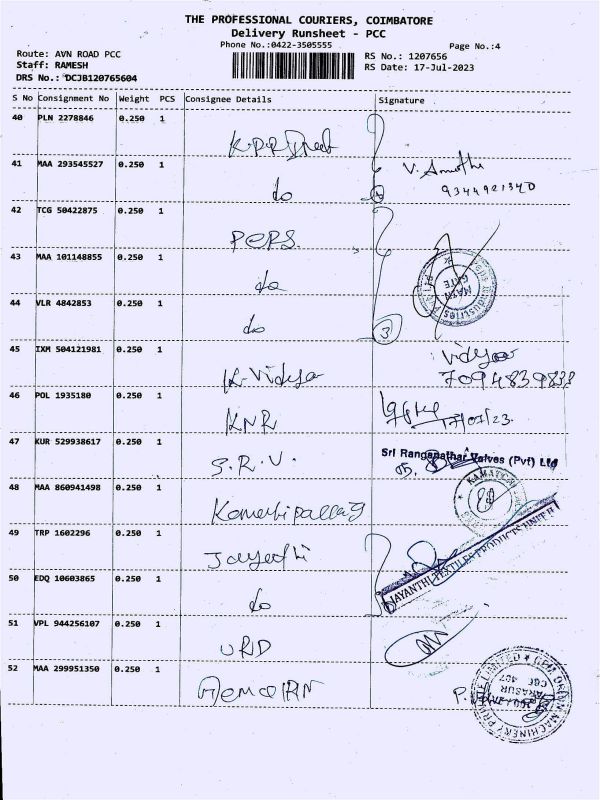 THE PROFESSIONAL COURIERS, COIMBATORE
Delivery Runsheet - PCC
Phone No.:0422-3505555
Page No.:4
Route: AVN ROAD PCC
Staff: RAMESH
DRS No.: DCJB120765604
RS No.: 1207656
RS Date: 17-Jul-2023
S No Consignment No Weight PCS Consignee Details Signature
40 PLN 2278846 0.250 1
41 MAA 293545527 0.250 1 do
9344921340
42 TCG 50422875 0.250 1
43 MAA 101148855 0.250 1 do
MAIN GATE
44 VLR 4842853 0.250 1 do 3
45 IXM 504121981 0.250 1 K-Vidya Vidya
7094839833
46 POL 1935180 0.250 1 KNR 17/07/23.
47 KUR 529938617 0.250 1 S.R.V. Sri Ranganathar Valves (Pvf) Ltd
48 MAA 860941498 0.250 1
49 TRP 1602296 0.250 1 JAYANTHI TEXTILE PRODUCTS UNIT II
50 EDQ 10603865 0.250 1 do
51 VPL 944256107 0.250 1 URD
52 MAA 299951350 0.250 1